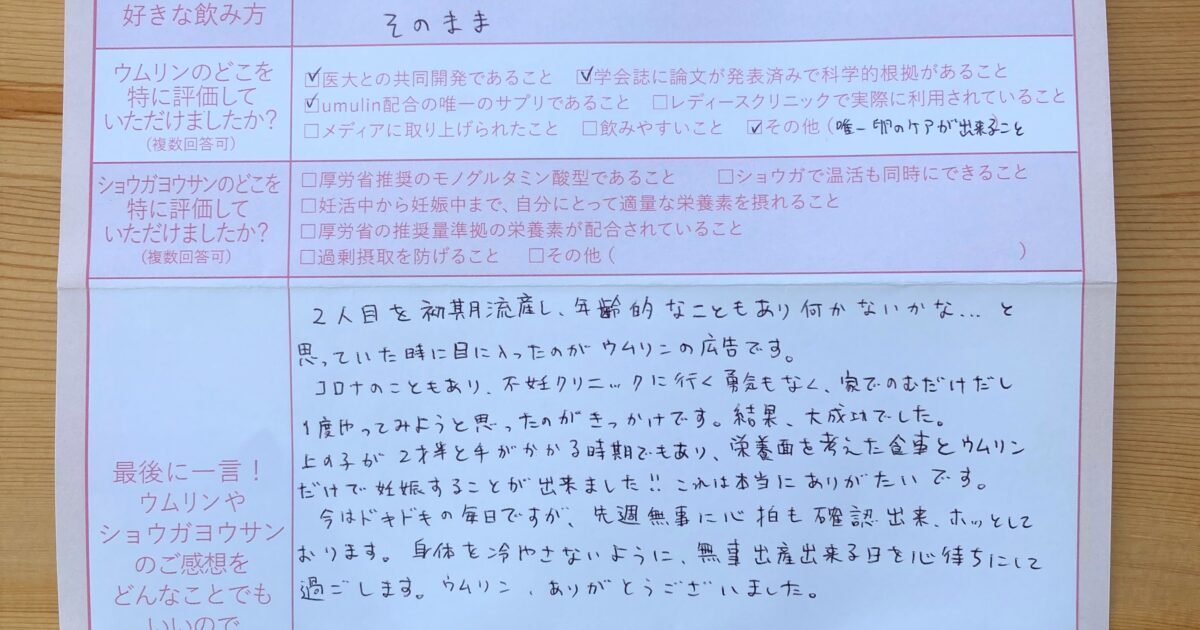 好きな飲み方
そのまま
ウムリンのどこを
特に評価して
いただけましたか?
(複数回答可)
☑医大との共同開発であること ☑学会誌に論文が発表済みで科学的根拠があること
☑umulin配合の唯一のサプリであること □レディースクリニックで実際に利用されていること
□メディアに取り上げられたこと □飲みやすいこと ☑その他(唯一卵のケアが出来ること
ショウガヨウサンのどこを
特に評価して
いただけましたか?
(複数回答可)
□厚労省推奨のモノグルタミン酸型であること □ショウガで温活も同時にできること
□妊活中から妊娠中まで、自分にとって適量な栄養素を摂れること
□厚労省の推奨量準拠の栄養素が配合されていること
□過剰摂取を防げること □その他( )
最後に一言!
ウムリンや
ショウガヨウサン
のご感想を
どんなことでも
いいので
2人目を初期流産し、年齢的なこともあり何かないかな…と
思っていた時に目に入ったのがウムリンの広告です。
コロナのこともあり、不妊クリニックに行く勇気もなく、家でのむだけだし
1度やってみようと思ったのがきっかけです。結果、大成功でした。
上の子が2才半と手がかかる時期でもあり、栄養面を考えた食事とウムリン
だけで妊娠することが出来ました!!これは本当にありがたいです。
今はドキドキの毎日ですが、先週無事に心拍も確認出来、ホッとして
おります。身体を冷やさないように、無事出産出来る日を心待ちにして
過ごします。ウムリン、ありがとうございました。